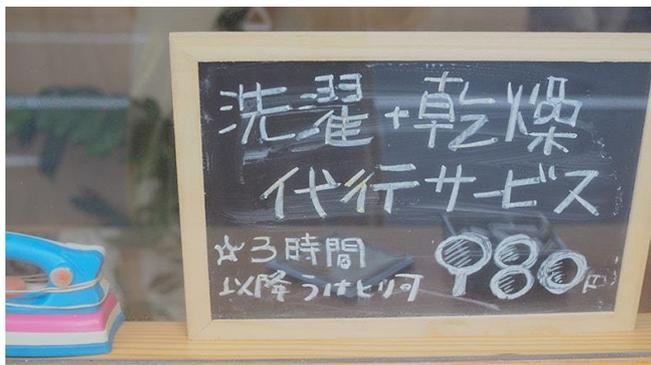 洗濯+乾燥
代行サービス
☆3時間
以降うけとり可
980円